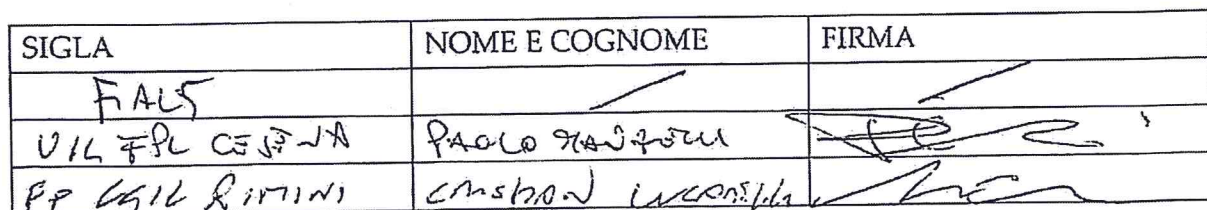 SIGLA NOME E COGNOME FIRMA
FIALS / /
UIL FPL CESENA PAOLO MANZELLI
FP CGIL RIMINI